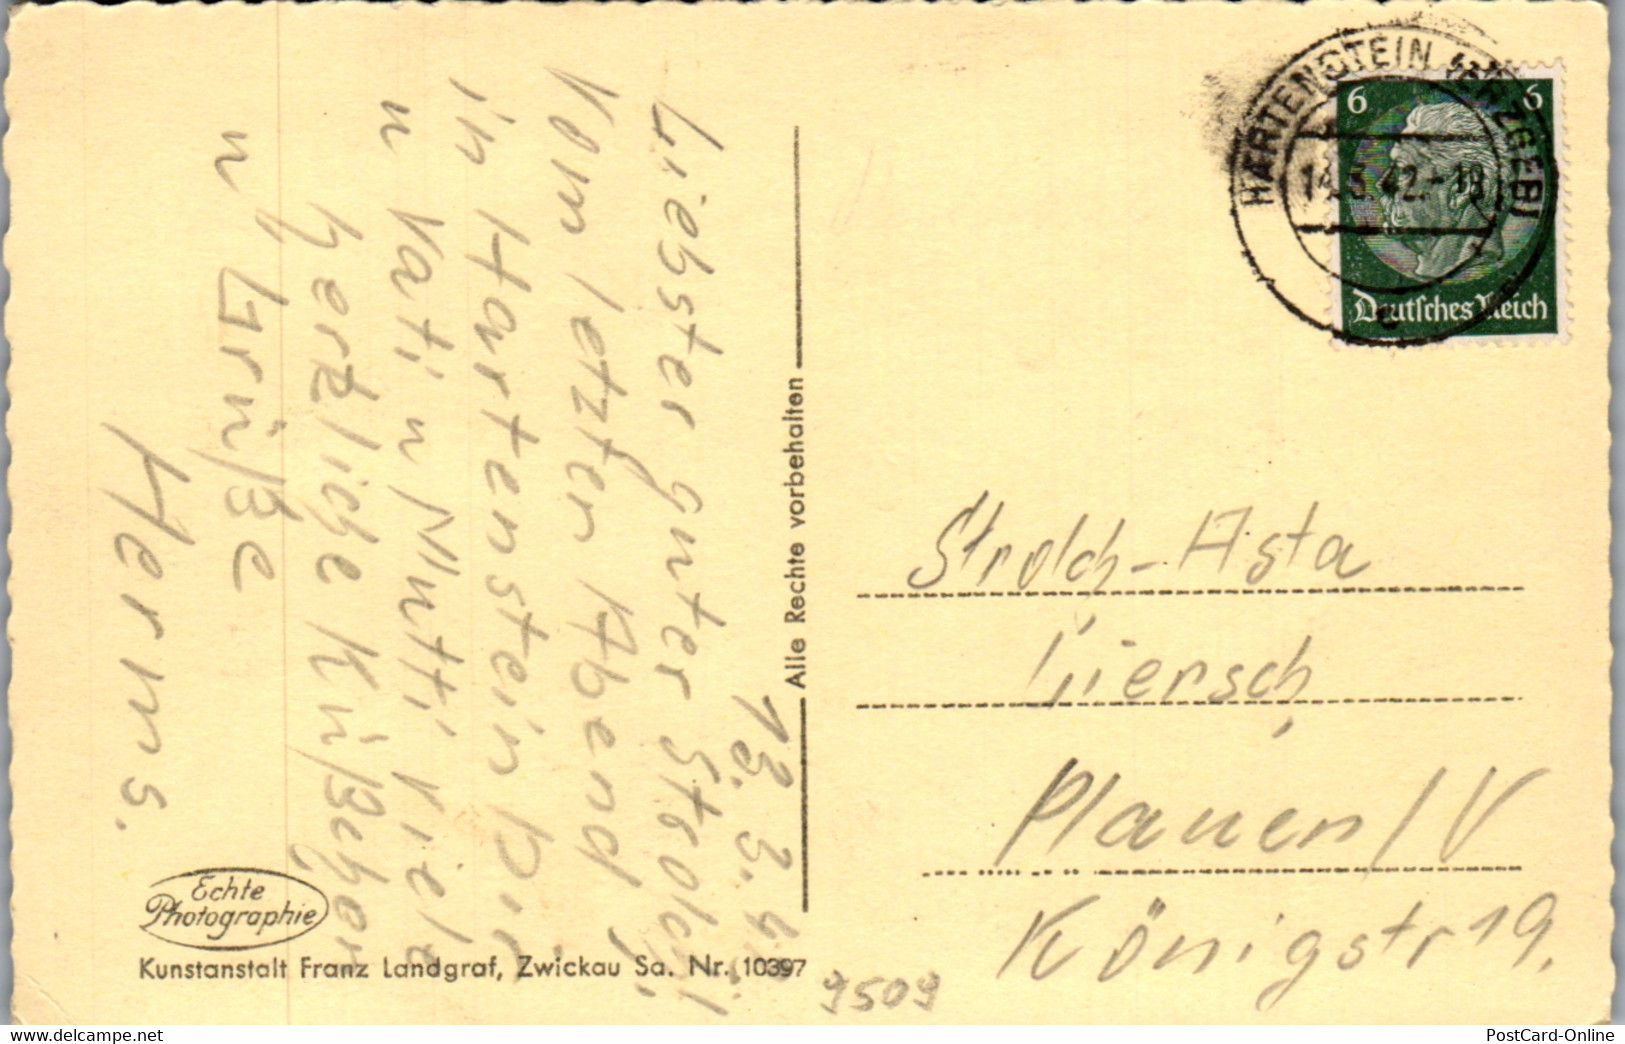 13. 3. 42
Liebster guter Strolch!
Vom letzten Abend
in Hartenstein Dir
u Vati u Mutti viele
herzliche Küßchen
u Grüße
Herms.
Alle Rechte vorbehalten
Echte
Photographie
Kunstanstalt Franz Landgraf, Zwickau Sa. Nr. 10397
9509
HARTENSTEIN (ERZGEB)
14.3.42.-18
6 6
Deutsches Reich
Strolch-Asta
Liersch,
Plauen / V
Königstr 19.
PostCard-Online
www.delcampe.net